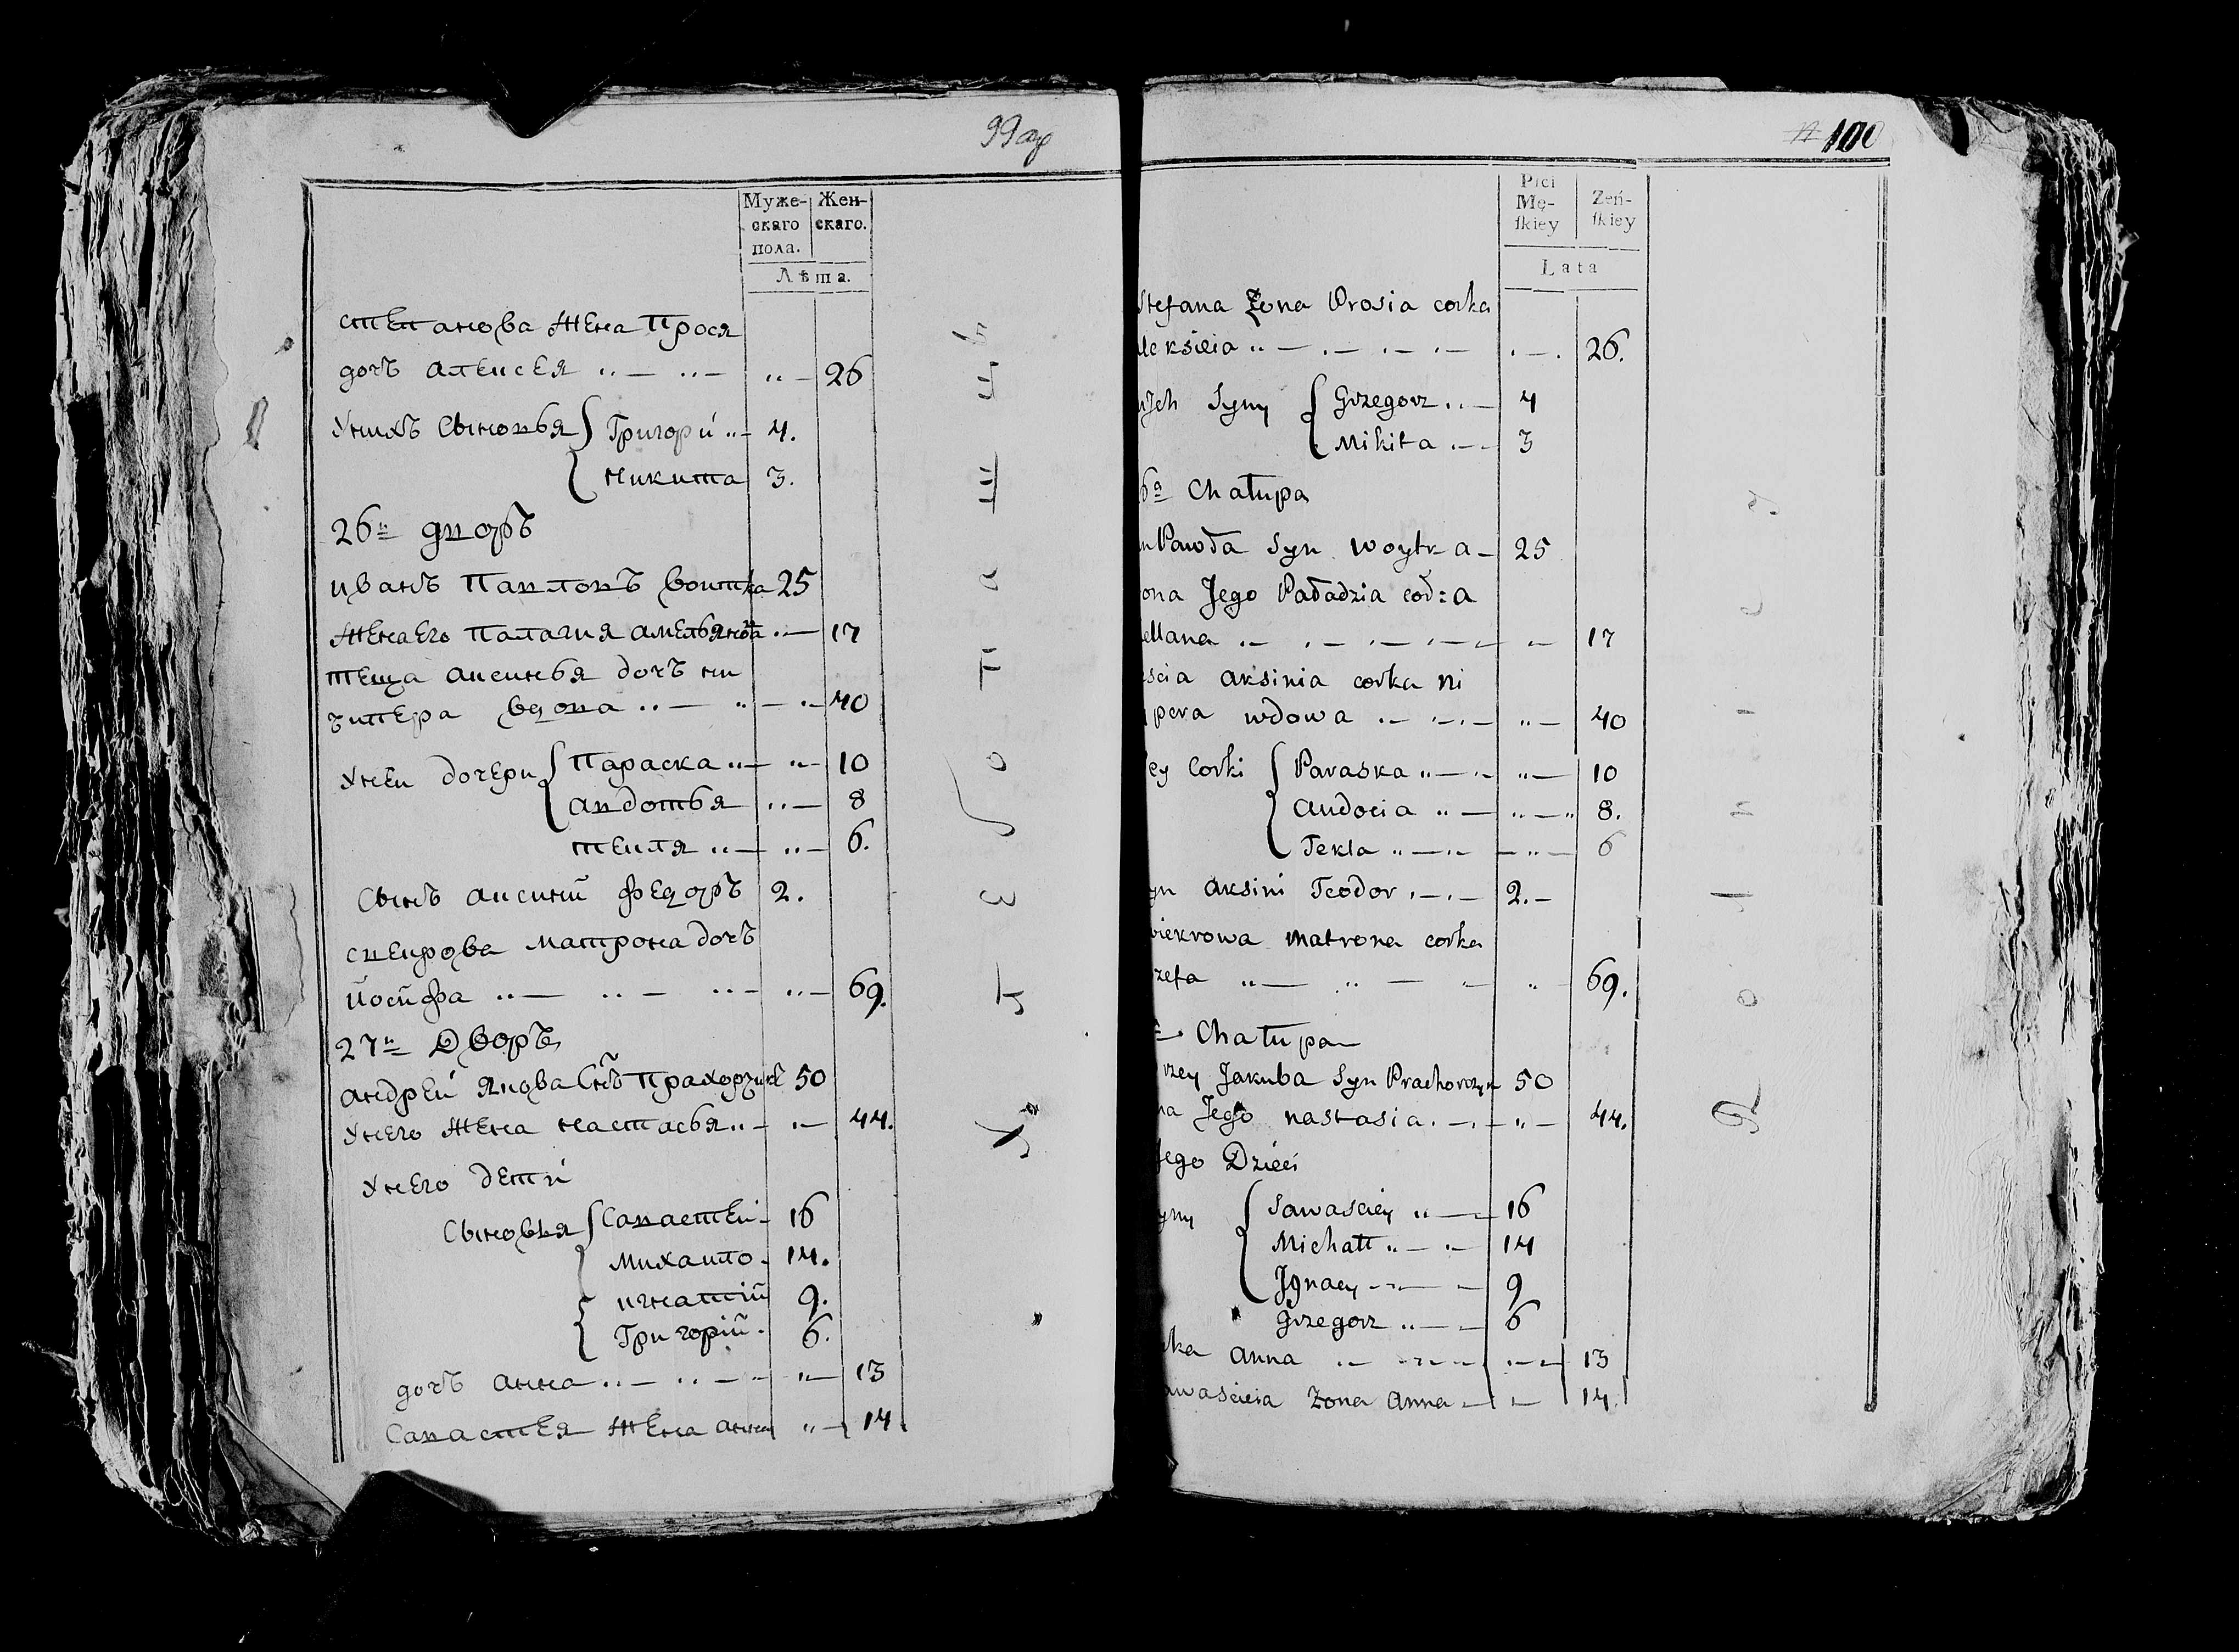 99 об
Муже-
скаго
пола.
Жен-
скаго.
Лѣта.
степанова жена Прося
дочъ алексея 26
Унихъ Сыновья Григори 4.
Никита 3.
26й дворъ
иванъ Павловъ воитка 25
Жена Его Палагия амельянова 17
теща аксинья дочъ ни
чипера вдова 40
Унеи дочери Параска 10
авдотья 8
текля 6.
Сынъ аксинй федоръ 2.
свекрова матрона дочъ
иосифа 69.
27й Дворъ
андреи якова Снъ Прахорчикъ 50
Унего Жена настасья 44.
Унего дети
Сыновья Савастеи 16
Михаило 14.
игнатий 9.
Григорий 6.
дочъ анна 13
Савастея Жена анна 14
Крестьане
100
Płci
Mę-
ſkiey
Żeń-
ſkiey
Lata
Stefana Zona Prosia corka
leksieia 26.
nich Syny Grzegorz 4
Mikita 3
6a Chałupa
n Pawła Syn woytka 25
ona Jego Paładzia cor:a
ellana 17
scia aksinia corka ni
pera wdowa 40
ey Corki Paraska 10
audocia 8.
Tekla 6
yn aksini Teodor 2.
wiekrowa matrona corka
zefa 69.
Chałupa
rzey Jakuba Syn Prachorczyk 50
na Jego nastasia 44.
Jego Dzieci
yny Sawasciey 16
Michałł 14
Jgnacy 9
Grzegorz 6
ka anna 13
awascieia Zona anna 14.